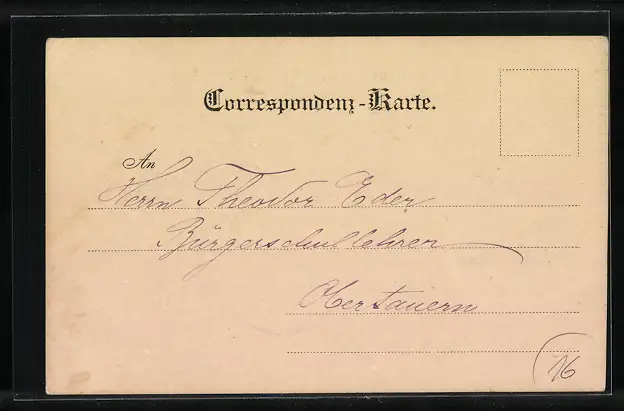 Correspondenz-Karte.
An
Herrn Theodor Eder
Bürgerschullehrer
Obertauern
16